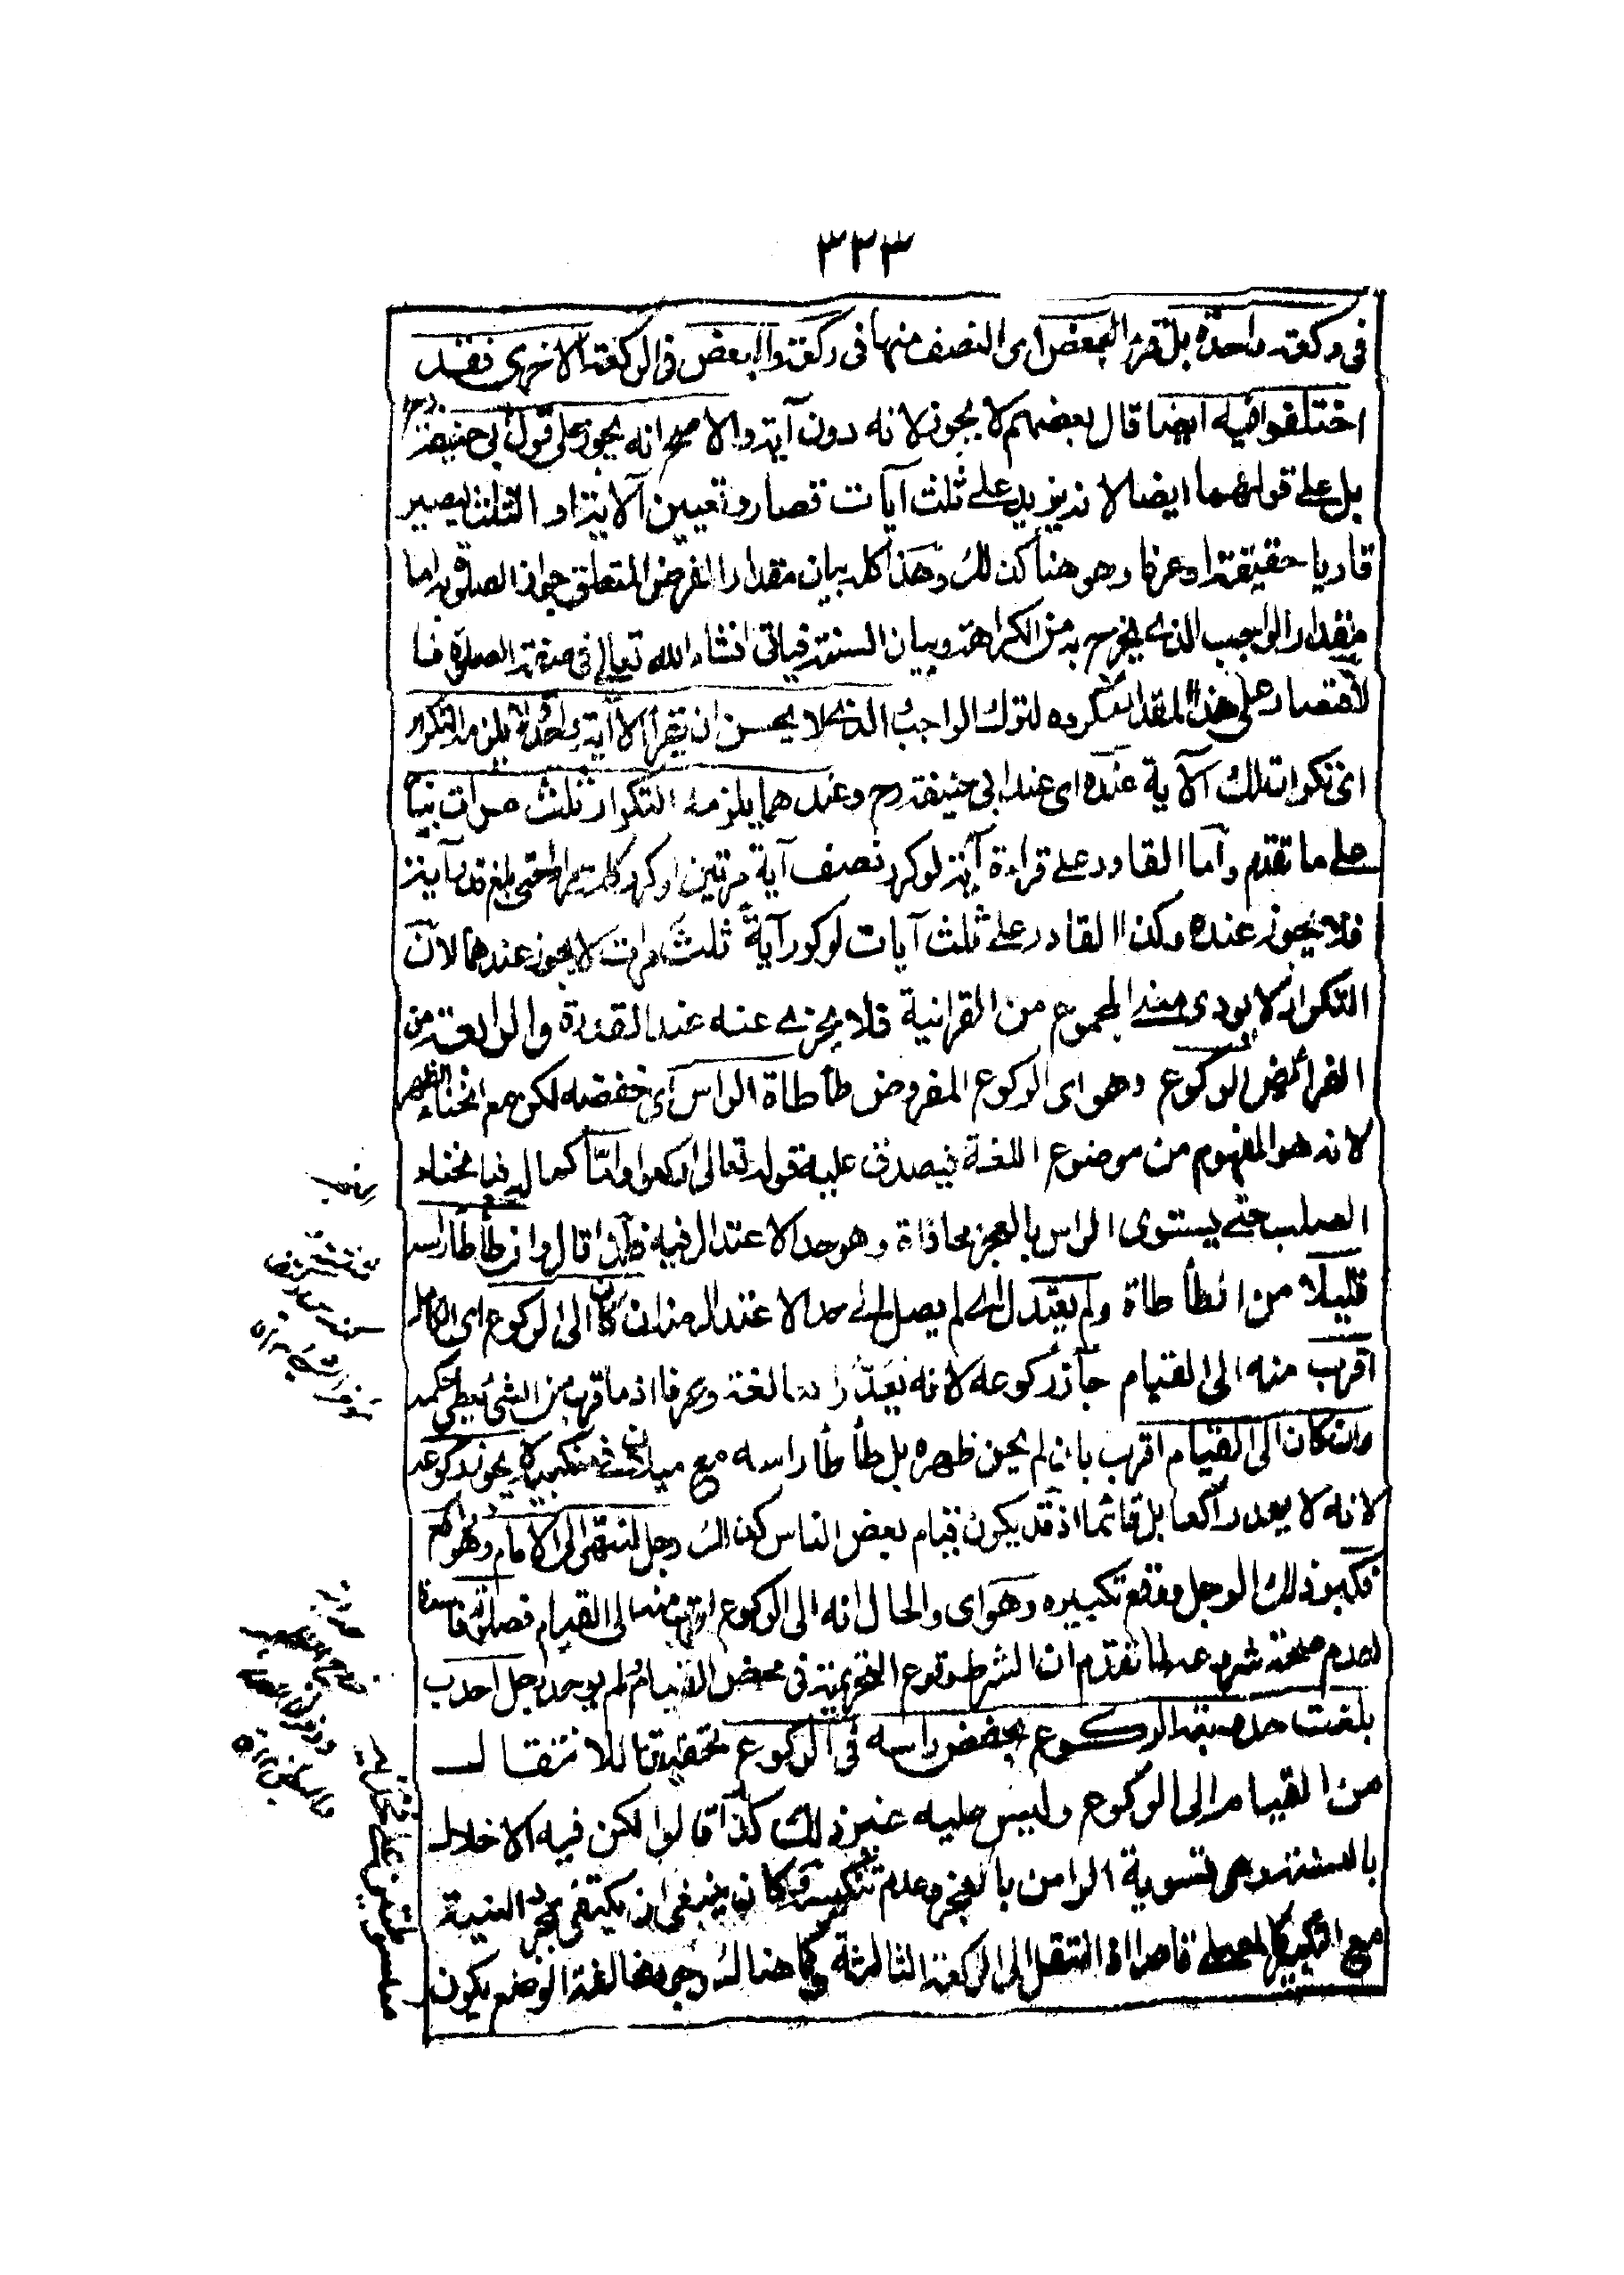 ٣٣٣
فى ركعة واحدة بل قرأ البعض اى النصف منها فى ركعة والبعض فى الركعة الاخرى فقد
اختلفوا فيه ايضا قال بعضهم لا يجوز لانه دون آية والاصح انه يجوز على قول ابى حنيفة رح
بل على قولهما ايضا لانه يزيد على ثلث آيات قصار وتعيين الآية او الثلث ليصير
قاريا حقيقة او عرفا وهو هنا كذلك وهذا كله بيان مقدار الفرض المتعلق جواز الصلوة به اما
مقدار الواجب الذى يخرج به من الكراهة وبيان السنة فياتى انشاء الله تعالى فى صفة الصلوة فـا
لاقتصار على هذا المقدار مكروه لترك الواجب الذى لا يحسن ان يقرأ الا آية واحدة لا يلزمه التكرار
اى تكرار تلك الآية عنده اى عند ابى حنيفة رح وعندهما يلزمه التكرار ثلث مرات بناءً
على ما تقدم واما القادر على قراءة آية لو كرر نصف آية مرتين او كرر كلمة مرارا حتى بلغ قدر آية
فلا يجوز عنده وكذا القادر على ثلث آيات لو كرر آية ثلث مرات لا يجوز عندهما لان
التكرار لا يودى منه المجموع من القرانية فلا يجزى عنه عند القدرة والرابعة من
الفرائض الركوع وهو اى الركوع المفروض طأطأة الراس اى خفضه لكن مع انحناء الظهر
لانه هو المفهوم من موضوع اللغة فيصدق عليه قوله تعالى اركعوا واما كماله فبانحناء
الصلب حتى يستوى الراس بالعجز محاذاة وهو حد الاعتدال فيه فلذا قال وان طأطأ راسه
قليلا من الطأطأة ولم يعتدل اى لم يصل الى حد الاعتدال ان كان الى الركوع اى الكامل
اقرب منه الى القيام جاز ركوعه لانه يعد راكعا لغة وعرفا اذ ما قرب من الشئ يعطى حكمه
وان كان الى القيام اقرب بان لم يحن ظهره بل طأطأ راسه مع ميلان فى منكبيه لا يجوز ركوعه
لانه لا يعد راكعا بل قائما اذ قد يكون قيام بعض الناس كذلك رجل انتهى الى الامام وهو راكع
فكبر ذلك الرجل فوقع تكبيره وهو اى والحال انه الى الركوع اقرب منه الى القيام فصلوته فاسدة
لعدم صحة شروعه لما تقدم ان الشرط وقوع التحريمة فى محض القيام ولم يوجد رجل احدب
بلغت حدوبته الركوع يخفض راسه فى الركوع تحقيقا للانتقال
من القيام الى الركوع وليس عليه غير ذلك كذا قالوا لكن فيه الاخلال
بالسنة وهى تسوية الراس بالعجز وعدم تنكيسه فكان ينبغى ان يكتفى بمجرد النية
مع التكبير كالمصلى قاعدا اذا انتقل الى الركعة الثالثة كما هنالك وهى مخالفة الوضع يكون